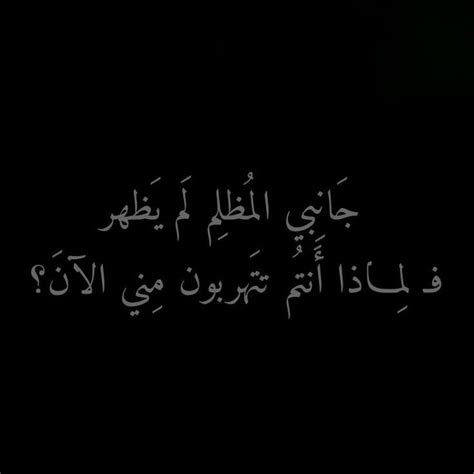 جَانِبِي المُظلِم لَم يَظهر
فـ لِمـاذا أَنتُم تتَهربون مِني الآنَ؟